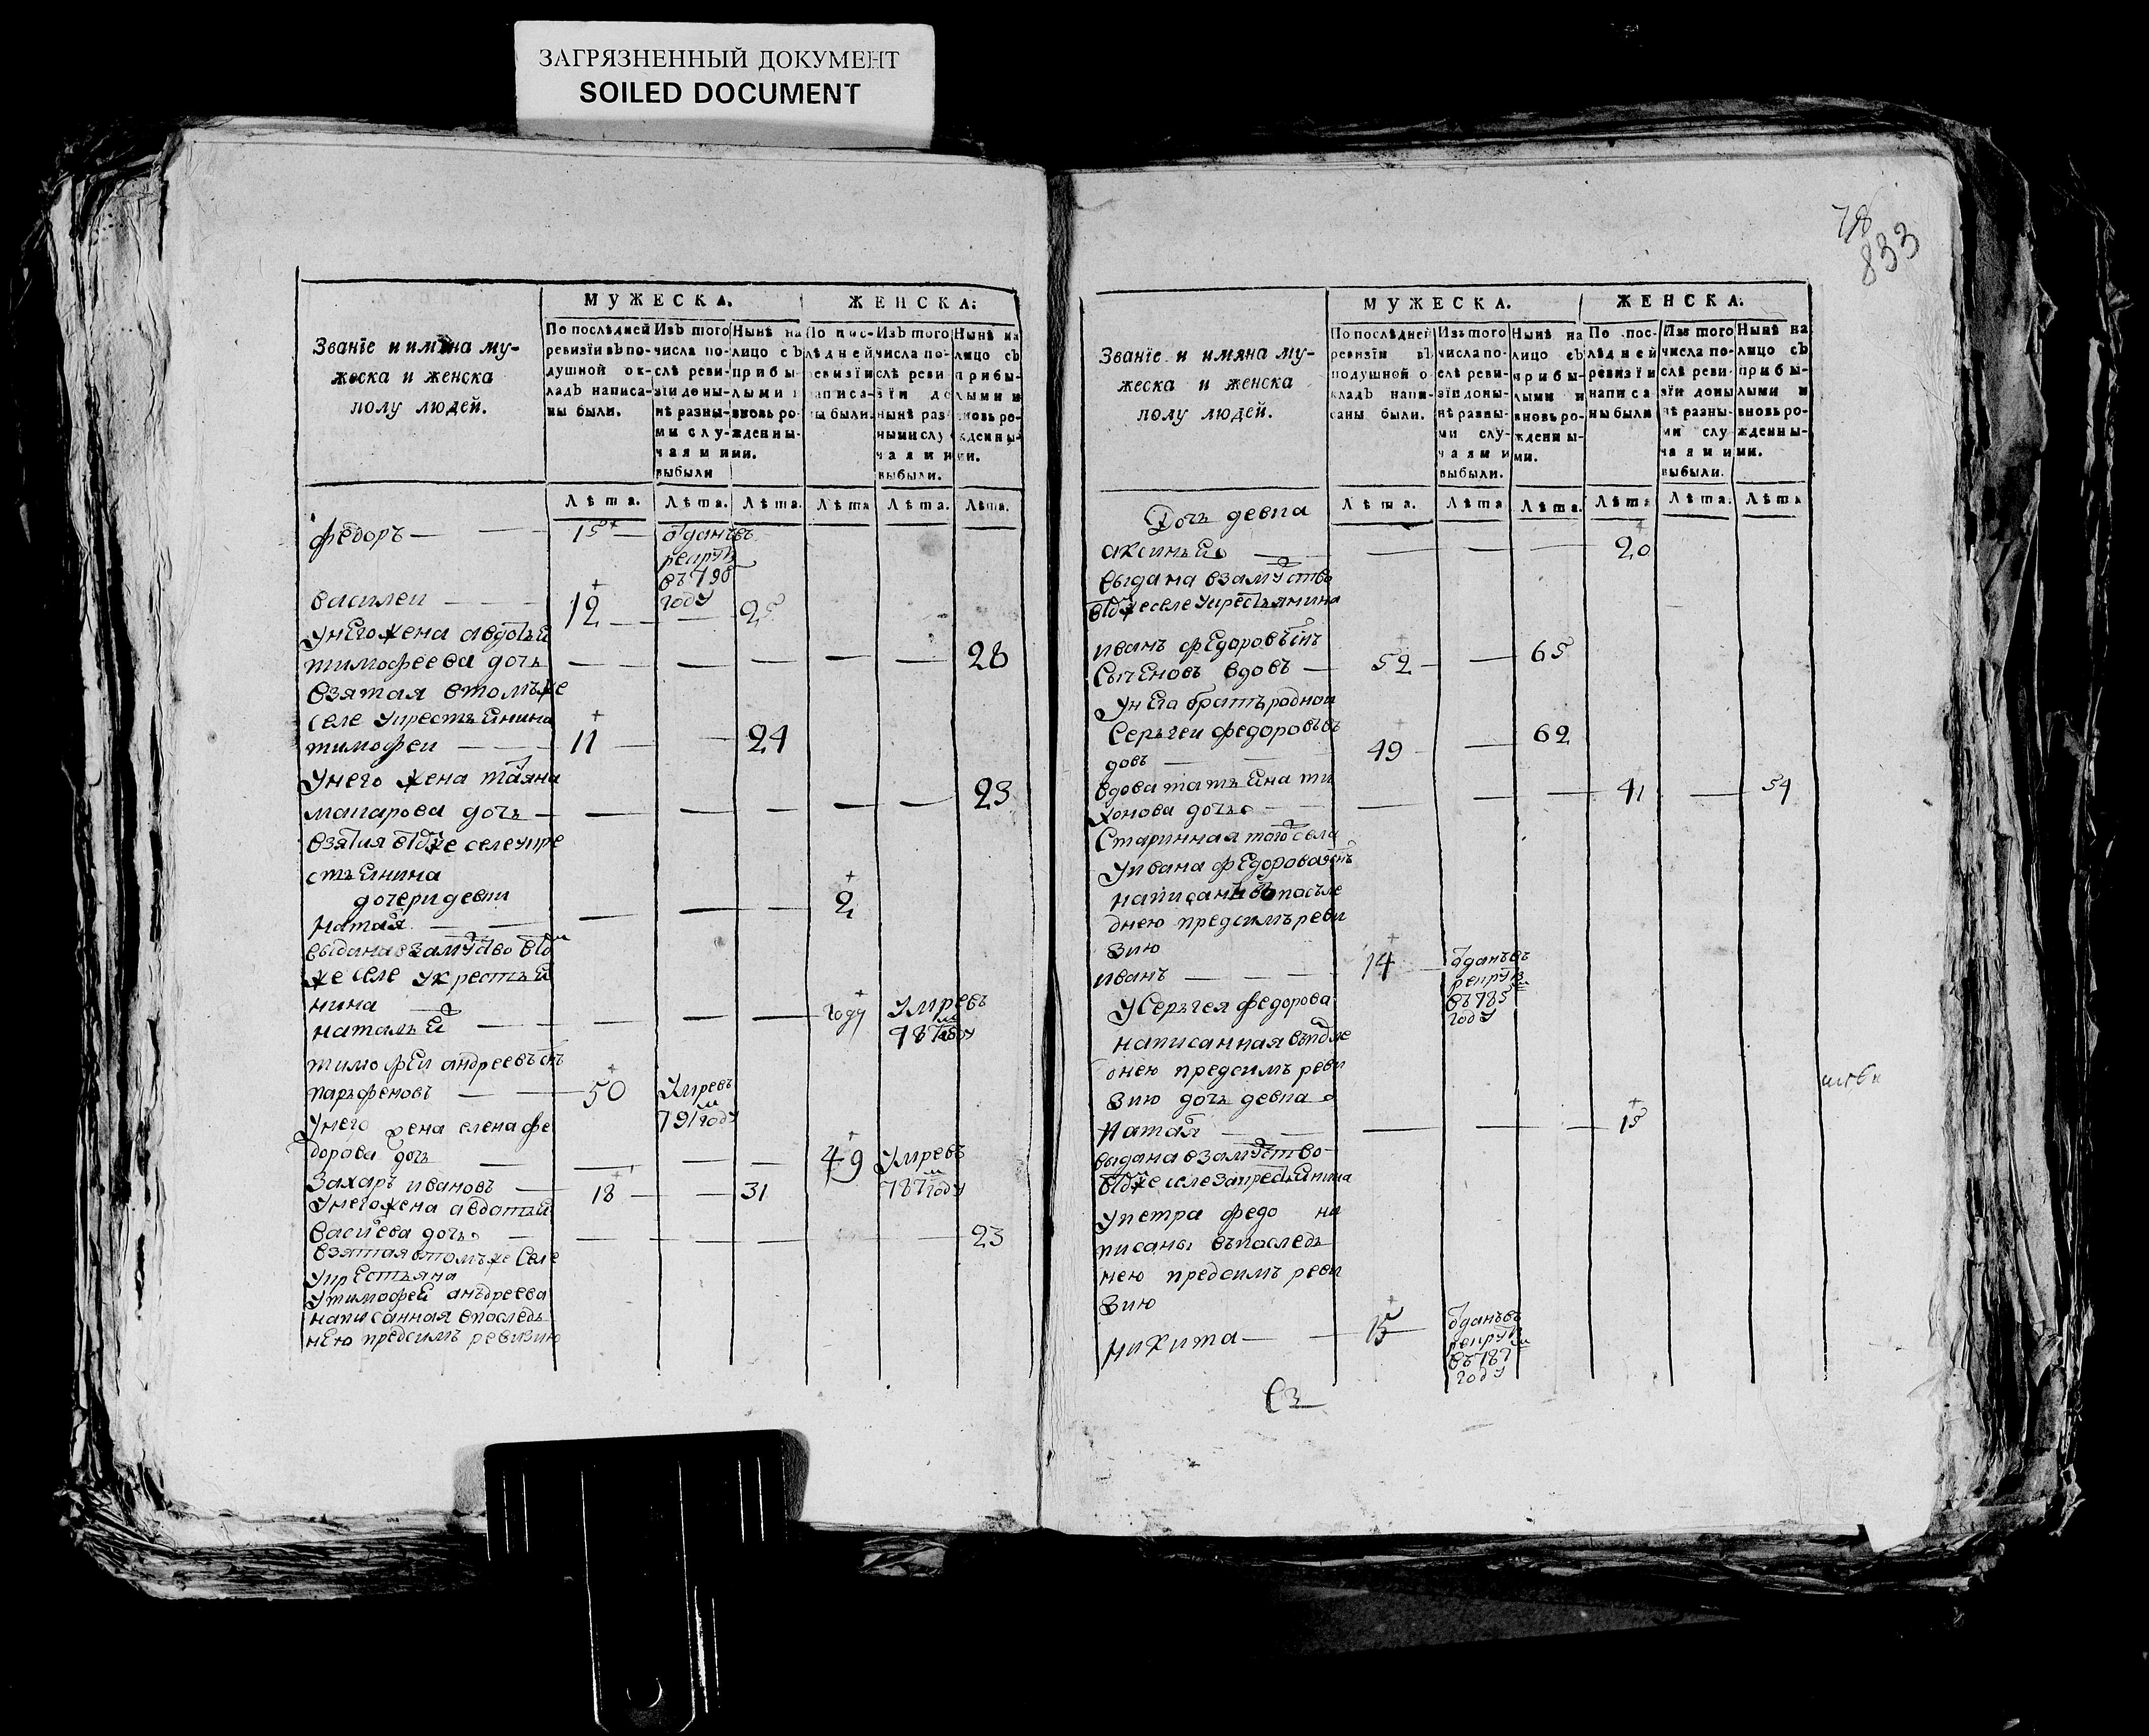 ЗАГРЯЗНЕННЫЙ ДОКУМЕНТ
SOILED DOCUMENT
МУЖЕСКА. ЖЕНСКА:
Званїе и имяна му-
жеска и женска
полу людей.
По послѣдней
ревизїи въ по-
душной ок-
ладъ написа-
ны были.
Изъ того
числа по-
слѣ реви-
зїи доны-
нѣ разны-
ми слу-
чаями
выбыли
Нынѣ на
лицо съ
прибы-
лыми и
вновь ро-
жденны-
ми.
По пос-
лѣдней
ревизїи
написа-
ны были.
Изъ того
числа по-
слѣ реви
зїи до
нынѣ раз
ными слу
чаями
выбыли.
Нынѣ на
лицо съ
прибы-
лыми и
вновь ро-
жденны-
ми.
Лѣта. Лѣта. Лѣта. Лѣта Лѣта. Лѣта.
федоръ 15 отданъ въ
рекруты
въ 790
году
василеи 12 25
унего жена авдотья
тимофеева дочь 28
взятая втомъже
селе укрестьянина
тимофеи 11 24
унего жена татяна
макарова дочь 23
взятия втомже селе укре
стьянина
дочери девки
наталя 2
выдана взамужство втом
же селе укрестья
нина
наталья году умре въ
787 году
тимофеи андреевъ снъ
паръфеновъ 50 умре въ
791 году
унего жена елена фе
дорова дочь 49 умре въ
787 году
захаръ ивановъ 18 31
унего жена авдотья
василева дочь 23
взятая втомъже селе
укрестьяна
утимофея анъдреева
написанная впоследь
нею предсимъ ревизию
78
833
МУЖЕСКА. ЖЕНСКА.
Званїе и имяна му-
жеска и женска
полу людей.
По послѣдней
ревизїи въ
подушной о
кладъ напи-
саны были.
Изъ того
числа по-
слѣ реви-
зїи доны-
нѣ разны-
ми слу-
чаями
выбыли.
Нынѣ на
лицо съ
прибы-
лыми и
вновь ро-
жденны-
ми.
По пос-
лѣдней
ревизїи
написа
ны были
Изъ того
числа по-
слѣ реви-
зїи доны
нѣ разны-
ми слу
чаями
выбыли.
Нынѣ на
лицо съ
прибы-
лыми и
вновь ро-
жденны-
ми.
Лѣта. Лѣта Лѣта. Лѣта Лѣта. Лѣта
Дочь девка
аксинья 20
выдана взамужство
втомже селе укрестьянина
иванъ федоровъ снъ
сыченовъ вдовъ 52 65
унего братъ роднои
серьгеи федоровъ в
довъ 49 62
вдова татьяна ти
хонова дочь 41 54
старинная того села
уивана федорова снъ
написанъ въ посъле
днею предсимъ реви
зию
иванъ 14 отданъ въ
рекруты
въ 785
году
усеръгея федорова
написанная въпосле
днею предсимъ реви
зию дочь девка
наталя 15
выдана взамужство
втомже селе закрестьянина
упетра федо на
писаны въпоследь
нею предсимъ реви
зию
никита 15 отданъ въ
рекруты
въ 787
году